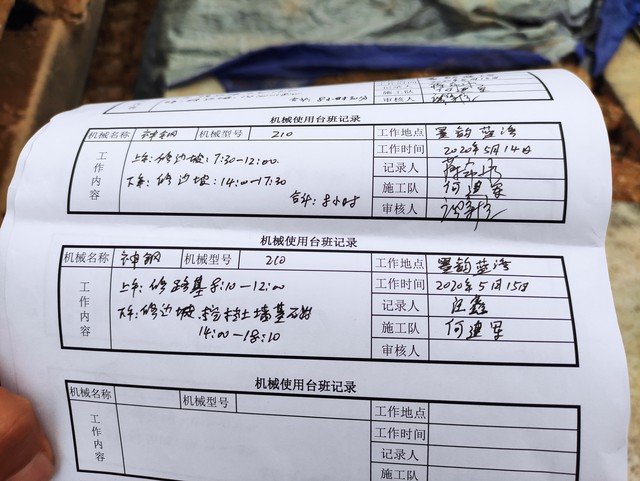 合计: 8小时30分
工作时间
记录人
施工队
审核人
机械使用台班记录
机械名称 神钢 机械型号 210 工作地点 墨韵蓝湾
工作内容
上午: 修边坡: 7:30-12:00. 工作时间 2020年5月14日
下午: 修边坡: 14:00-17:30 记录人
合计: 8小时 施工队 何建军
审核人
机械使用台班记录
机械名称 神钢 机械型号 210 工作地点 墨韵蓝湾
工作内容
上午: 修路基 8:10-12:00 工作时间 2020年5月15日
下午: 修边坡. 挡土墙基础 记录人 汪鑫
14:00-18:10 施工队 何建军
审核人
机械使用台班记录
机械名称 机械型号 工作地点
工作内容
工作时间
记录人
施工队